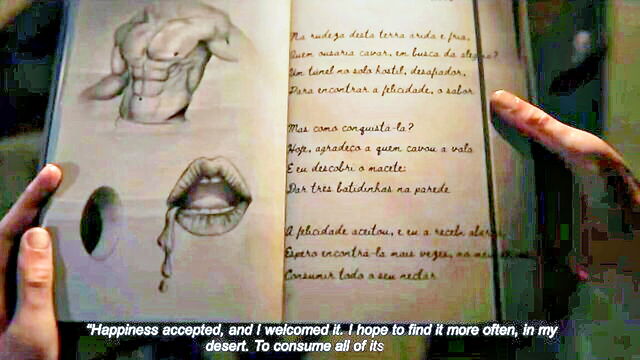 Na rudeza desta terra arida e fria,
Quem ousaria cavar, em busca da alegria?
Um túnel no solo hostil, desafiador,
Para encontrar a felicidade, o sabor
Mas como conquistá-la?
Hoje, agradeço a quem cavou a vala
E eu descobri o macete:
Dar três batidinhas na parede
A felicidade aceitou, e eu a recebi
Espero encontrá-la mais vezes, no meu
Consumir todo o seu néctar
"Happiness accepted, and I welcomed it. I hope to find it more often, in my
desert. To consume all of its